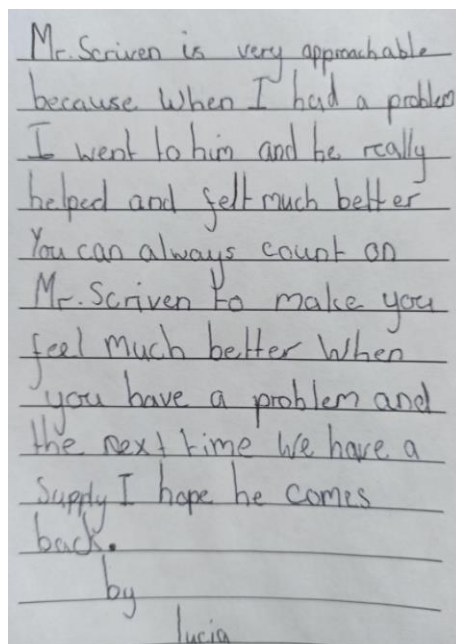 Mr. Scriven is very approachable
because When I had a problem
I went to him and he really
helped and felt much better
You can always count on
Mr. Scriven to make you
feel much better When
you have a problem and
the next time We have a
Supply I hope he comes
back.
by
lucia